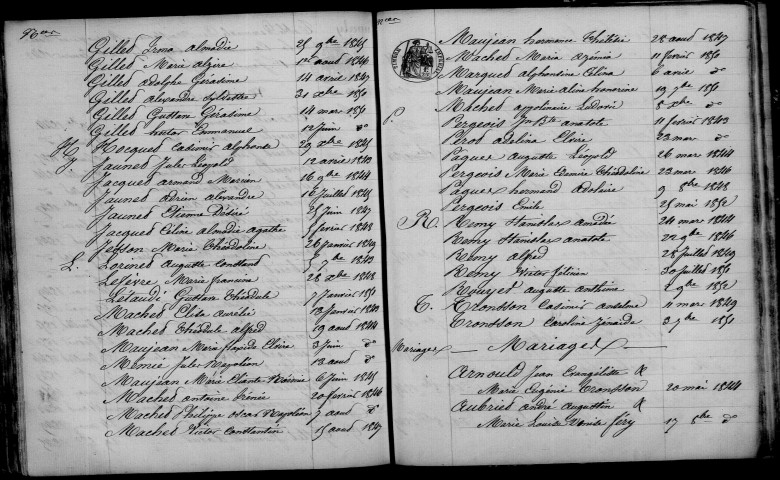 Gilled Irma almadie 25 9bre 1845
Gilled Marie alzire 1er aout 1846
Gilled adolphe Gerasime 14 avril 1847
Gilled alexandre Sylvestre 31 xbre 1850
Gilled Gustave Gérasime 14 mar 1851
Gilled nestor Emmanuel 12 Juin do
H. Hocqued Casimir alphonse 29 xbre 1845
J. Jauned Jules Léopold 12 avril 1843
Jacqued armand Marrien 16 9bre 1844
Jauned adrien alexandre 16 Juillet 1845
Jauned Etienne Désiré 25 Juin 1847
Jacqued Céline almadie agathe 5 fevrier 1848
Jesson Marie Théodoline 26 janvier 1849
L. Lorined auguste Constand 5 7bre 1843
Lefévre Marie francine 28 xbre 1848
Letaudé Gustave Théodule 7 Janvier 1851
Mached Elisa aurelie 13 Janvier 1843
Mached Théodule alfred 19 aout 1844
Maujean Marie floride Elvire 3 Juin do
Mennie Jules Napoléon 13 aout do
Maujean Marie Eliante Noémie 6 Juin 1845
Mached antoine Irénée 20 fevrier 1846
Mached Philippe oscar Napoléon 7 aout do
Mached Victor Constantin 15 aout 1847
Maujean hormance 28 aout 1847
Mached Maria 11 fevrier 1850
Marqued alphonsine Elina 6 avril do
Maujean Marie alina honorine 19 7bre 1851
Mached appolinaire Ludovic 8 xbre do
P. Pergeois Jn Bte anatole 11 fevrier 1843
Perot adelina Elvire 23 mar do
Paques auguste Léopold 26 mar 1844
Pergeois Marie Théodoline 23 mar 1846
Paques hormand adolaire 9 8bre 1848
Pergeois Emile 25 mai 1850
R. Remy Stanislas amédée 24 mar 1844
Remy Stanislas anatole 22 9bre 1846
Remy alfred 28 Juillet 1849
Remy Victor félicien 30 Juillet 1850
Rouyer auguste anthime 2 9bre 1850
T. Tronsson Casimir antoine 11 mar 1849
Tronsson Caroline Zénaïde 3 7bre 1850
Mariages — Mariages —
Arnould Jean Evangéliste &
Marie Eugénie Tronsson 20 mai 1844
Aubried andré augustin &
Marie Louise Fery 17 do